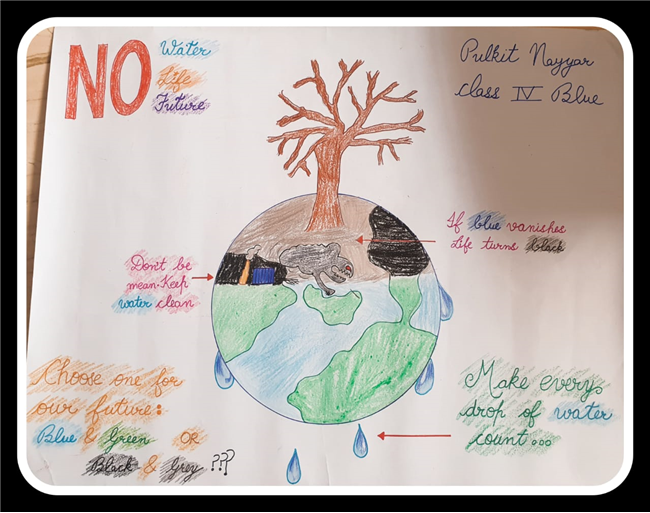 NO Water
Life
Future
Pulkit Nayyar
class IV Blue
If blue vanishes
Life turns black
Don't be
mean. Keep
water clean
Choose one for
our future:
Blue & Green OR
Black & Grey ???
Make every
drop of water
count...